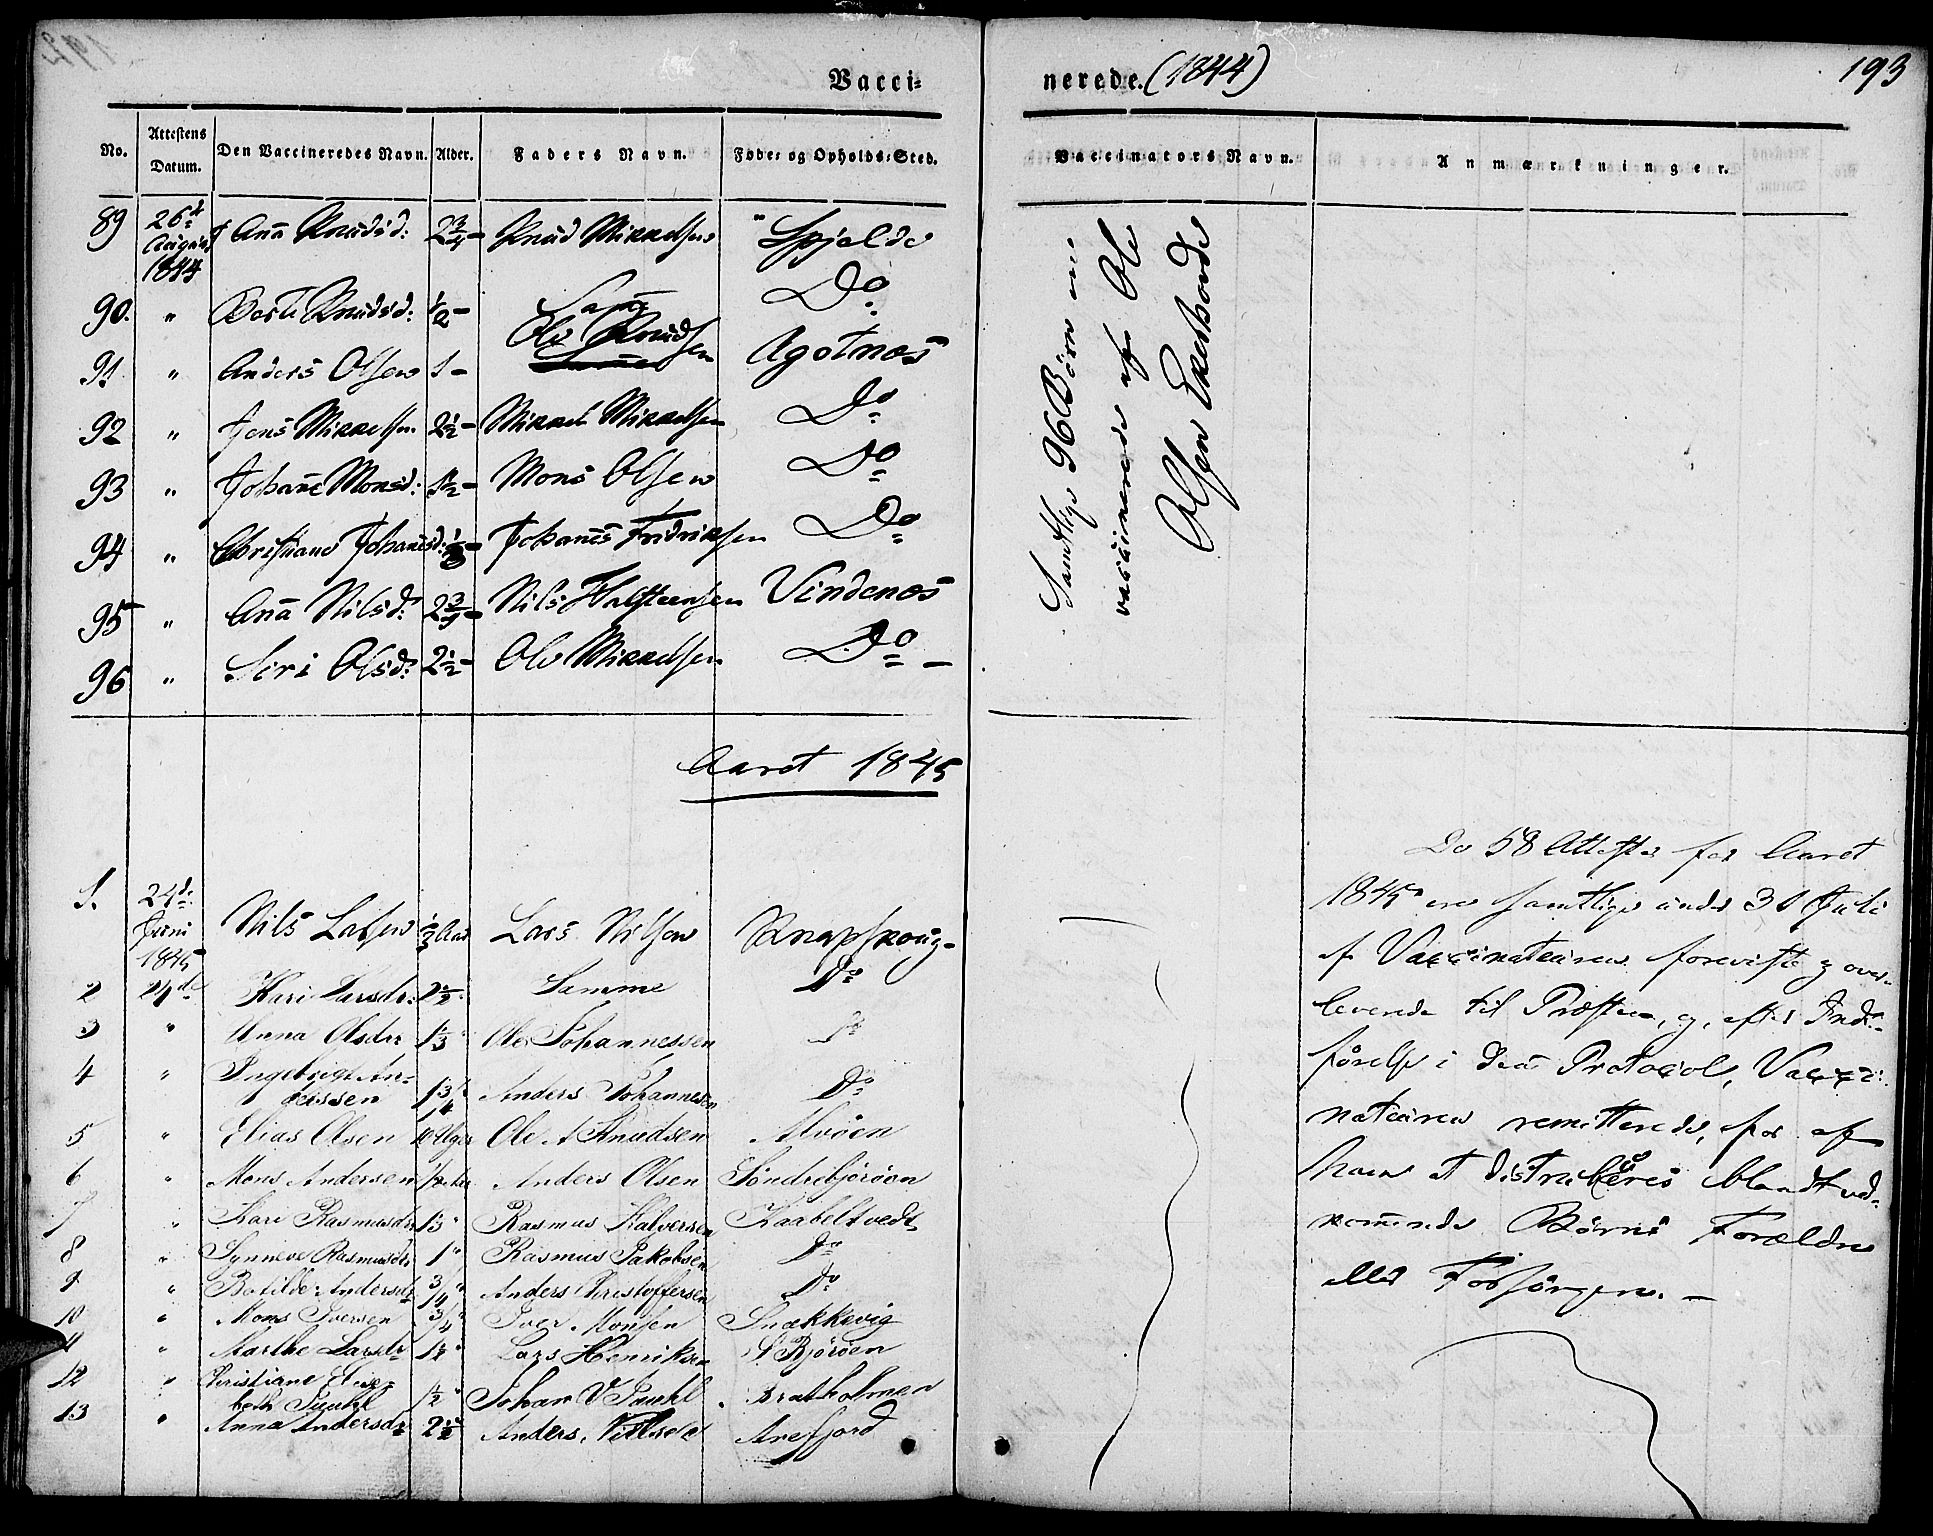 Vacci= nerede. (1844) 193
No. Attestens Datum. Den Vaccineredes Navn. Alder. Faders Navn. Føde= og Opholds=Sted. Vaccinators Navn. Anmærkninger.
89 26d August 1844 Anna Knudsd: 2¾ - Knud Mikkelsen Spjelde
90. " Knudsd: ½ - Samme Do
91 " Anders Olsen 1 - Ole Knudsen Agotnæs
92 " Jens Mikkelsen 2½ - Mikkel Mikkelsen Do
93 " Johanne Monsd: 1½ - Mons Olsen Do
94 " Christiane Johannesd: Johannes Fridriksen Do
95 " Anna Nilsd: 2¾ - Nils Halsteensen Vindenæs
96 " Siri Olsd: 2½ - Ole Mikkelsen Do -
Samtlige 96 Børn ere
vaccinerede af Ole
Olsen Ekerhovde
Aaret 1845
1. 24d: Juni 1845 Nils Larsen ½ Aar Lars Nilsen Knapskoug-
2 24de Kari Larsdr: 2½ Samme Do
3 " Anna Olsdr 1⅓ " Ole Johannessen Do
4 " Ingebrigt An=
derssen 1¾ Anders Johannesen Do
5 " Elias Olsen 10 Uger Ole A Knudsen Alvøen
6 " Mons Andersen ½ Aar Anders Olsen Søndrebjørøen
7 " Kari Rasmusdr Rasmus Halversen Kaabeltvedt
8 " Synneve Rasmusdr 1 " Rasmus Jakobsen Do
9 " Botilde Andersdr ¾ " Anders Kristoffersen Do
10 " Mons Iversen ¾ " Iver Monsen Snekkevig
11 " Marthe Larsdr 1½ " Lars Henriksen S. Bjørøen
12 " Kristiane Elise=
beth 1½ " Johan V Bratholmen
13 " Anna Andersdr 2½ Anders Arefjord
De 58 Attester for Aaret
1845 ere samtlige under 30 Juli
af Vaccinateuren foreviste og over-
leverede til Præsten, og, efter Ind-
førelse i denne Protocol, Vacci-
nateuren remitterede, for af
ham at distribueres blandt ved-
kommende Børns Forældre
eller Forsørgere. -